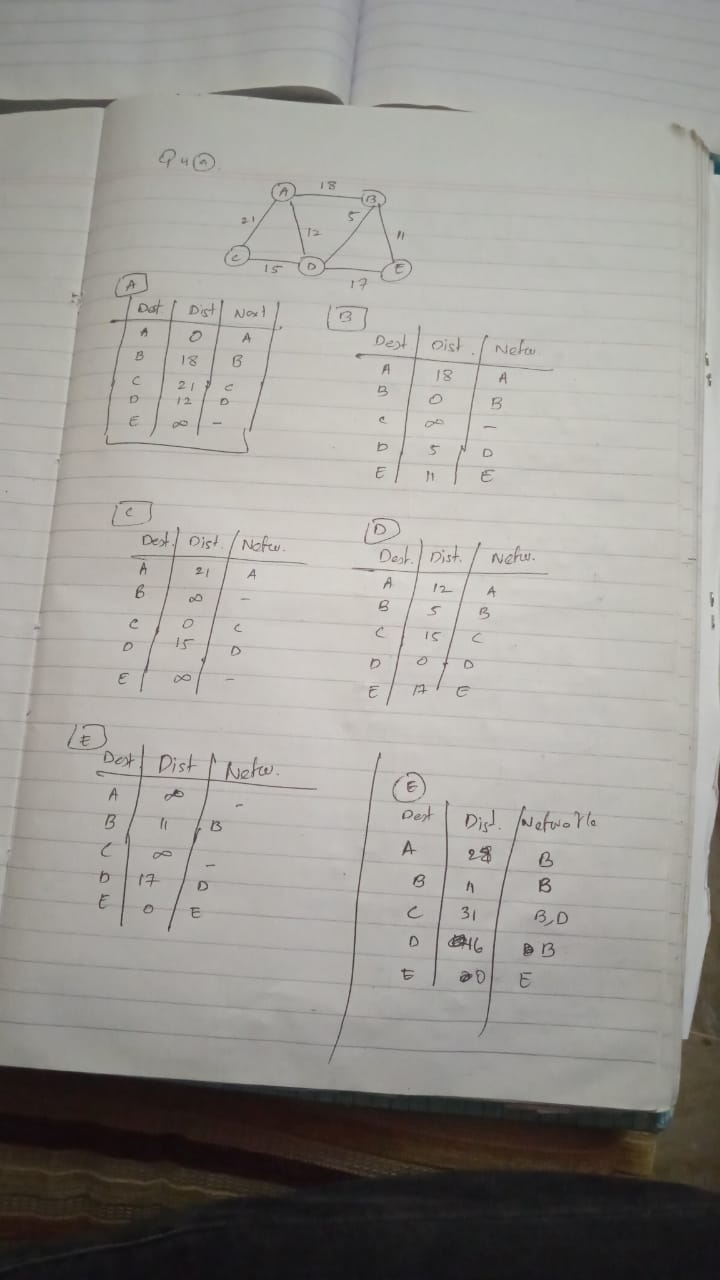 Q4 a
A 18 B
21 12 5 11
C 15 D 17 E
A
Dest Dist Next
A 0 A
B 18 B
C 21 C
D 12 D
E ∞ -
B
Dest Dist. Netw.
A 18 A
B 0 B
C ∞ -
D 5 D
E 11 E
C
Dest. Dist. Netw.
A 21 A
B ∞ -
C 0 C
D 15 D
E ∞ -
D
Dest. Dist. Netw.
A 12 A
B 5 B
C 15 C
D 0 D
E 17 E
E
Dest Dist Netw.
A ∞ -
B 11 B
C ∞ -
D 17 D
E 0 E
E
Dest Dist.
A B
B 11 B
C 31 B,D
D 16 B
E 0 E